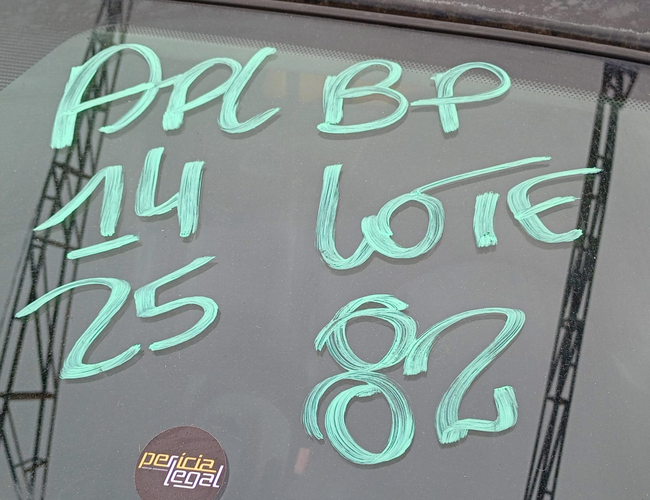 APL BP
14 LOTE
25 82
pericia
legal